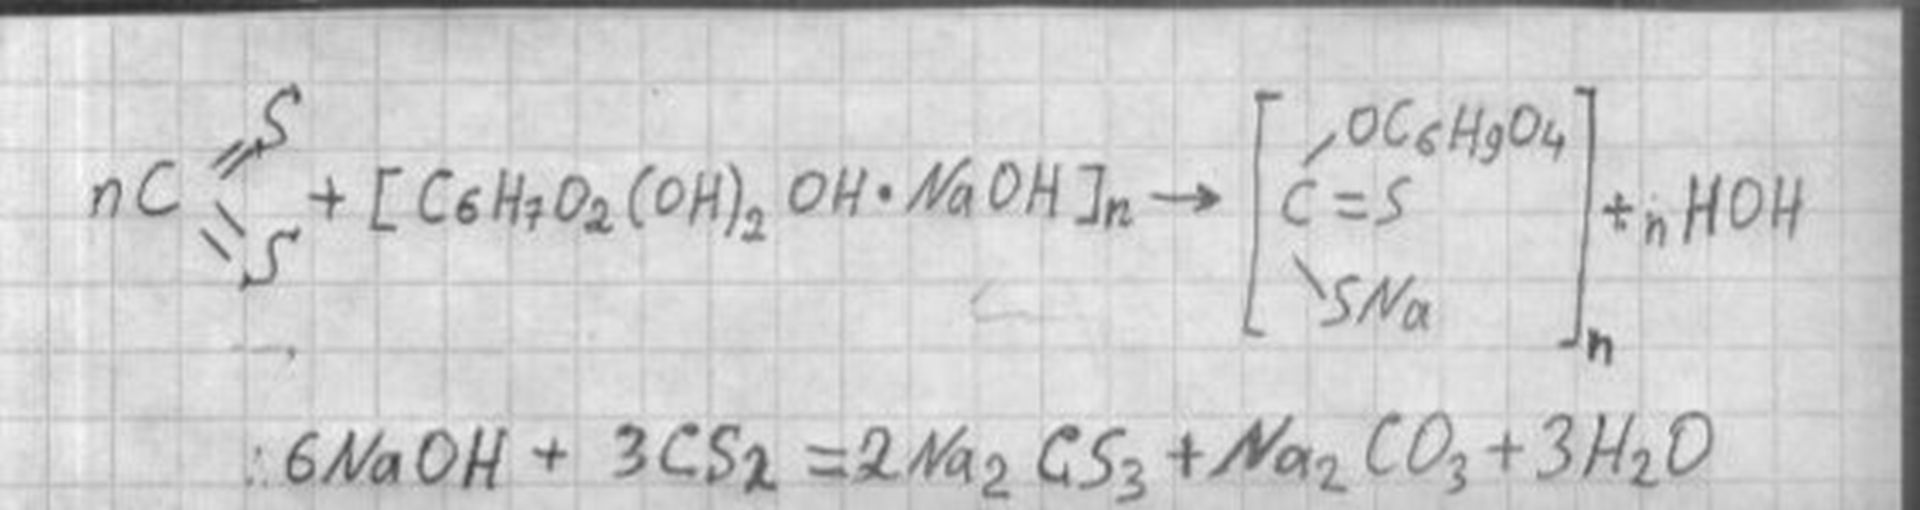 nC(=S)(=S) + [C₆H₇O₂(OH)₂ OH·NaOH]ₙ → [C(OC₆H₉O₄)(=S)(SNa)]ₙ + nHOH
6NaOH + 3CS₂ = 2Na₂CS₃ + Na₂CO₃ + 3H₂O